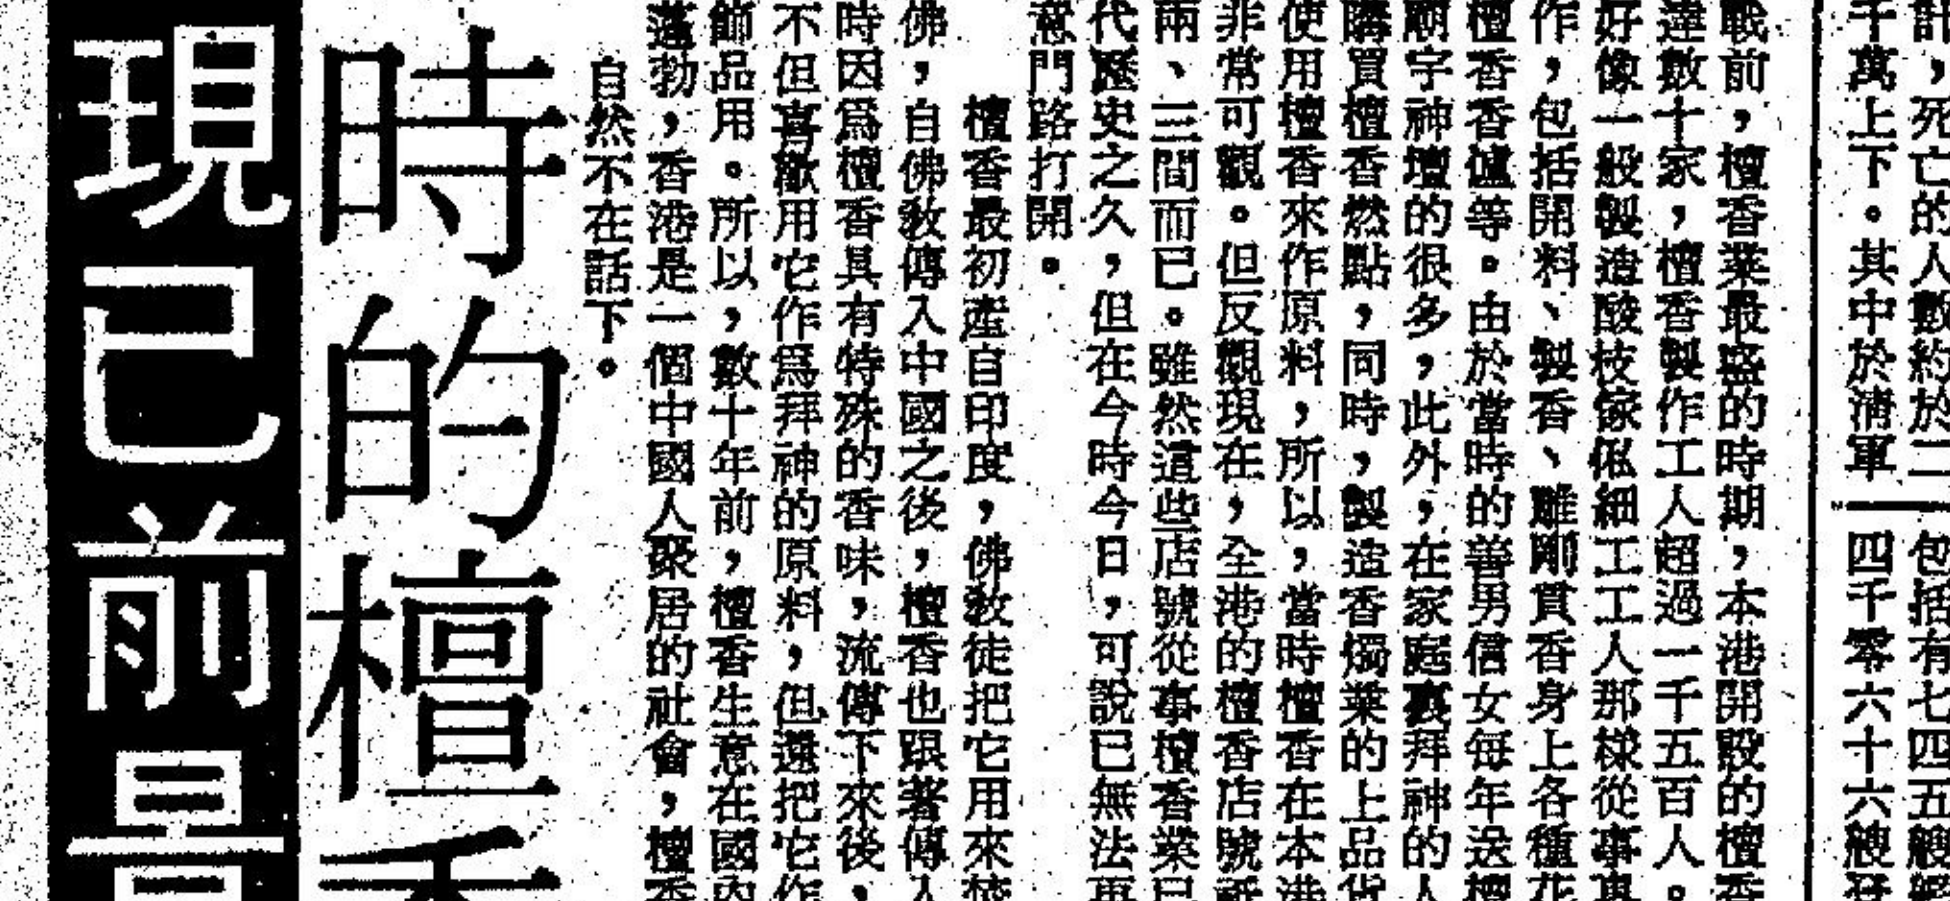 計，死亡的人數約於二
千萬上下。其中於清軍
包括有七四五艘
四千零六十六艘
戰前，檀香業最盛的時期，本港開設的檀香
達數十家，檀香製作工人超過一千五百人。
好像一般製造酸枝傢俬細工工人那樣從事
作，包括開料、製香、雕剛貫香身上各種花
檀香香爐等。由於當時的善男信女每年送檀
廟宇神壇的很多，此外，在家庭裏拜神的人
購買檀香燃點，同時，製造香燭業的上品貨
使用檀香來作原料，所以，當時檀香在本港
非常可觀。但反觀現在，全港的檀香店號
兩、三間而已。雖然這些店號從事檀香業已
代歷史之久，但在今時今日，可說已無法再
意門路打開。
檀香最初產自印度，佛教徒把它用來焚
佛，自佛教傳入中國之後，檀香也跟著傳入
時因為檀香具有特殊的香味，流傳下來後，
不但喜歡用它作為拜神的原料，但還把它作
飾品用。所以，數十年前，檀香生意在國內
蓬勃，香港是一個中國人聚居的社會，檀香
自然不在話下。
時的檀香
現已前景